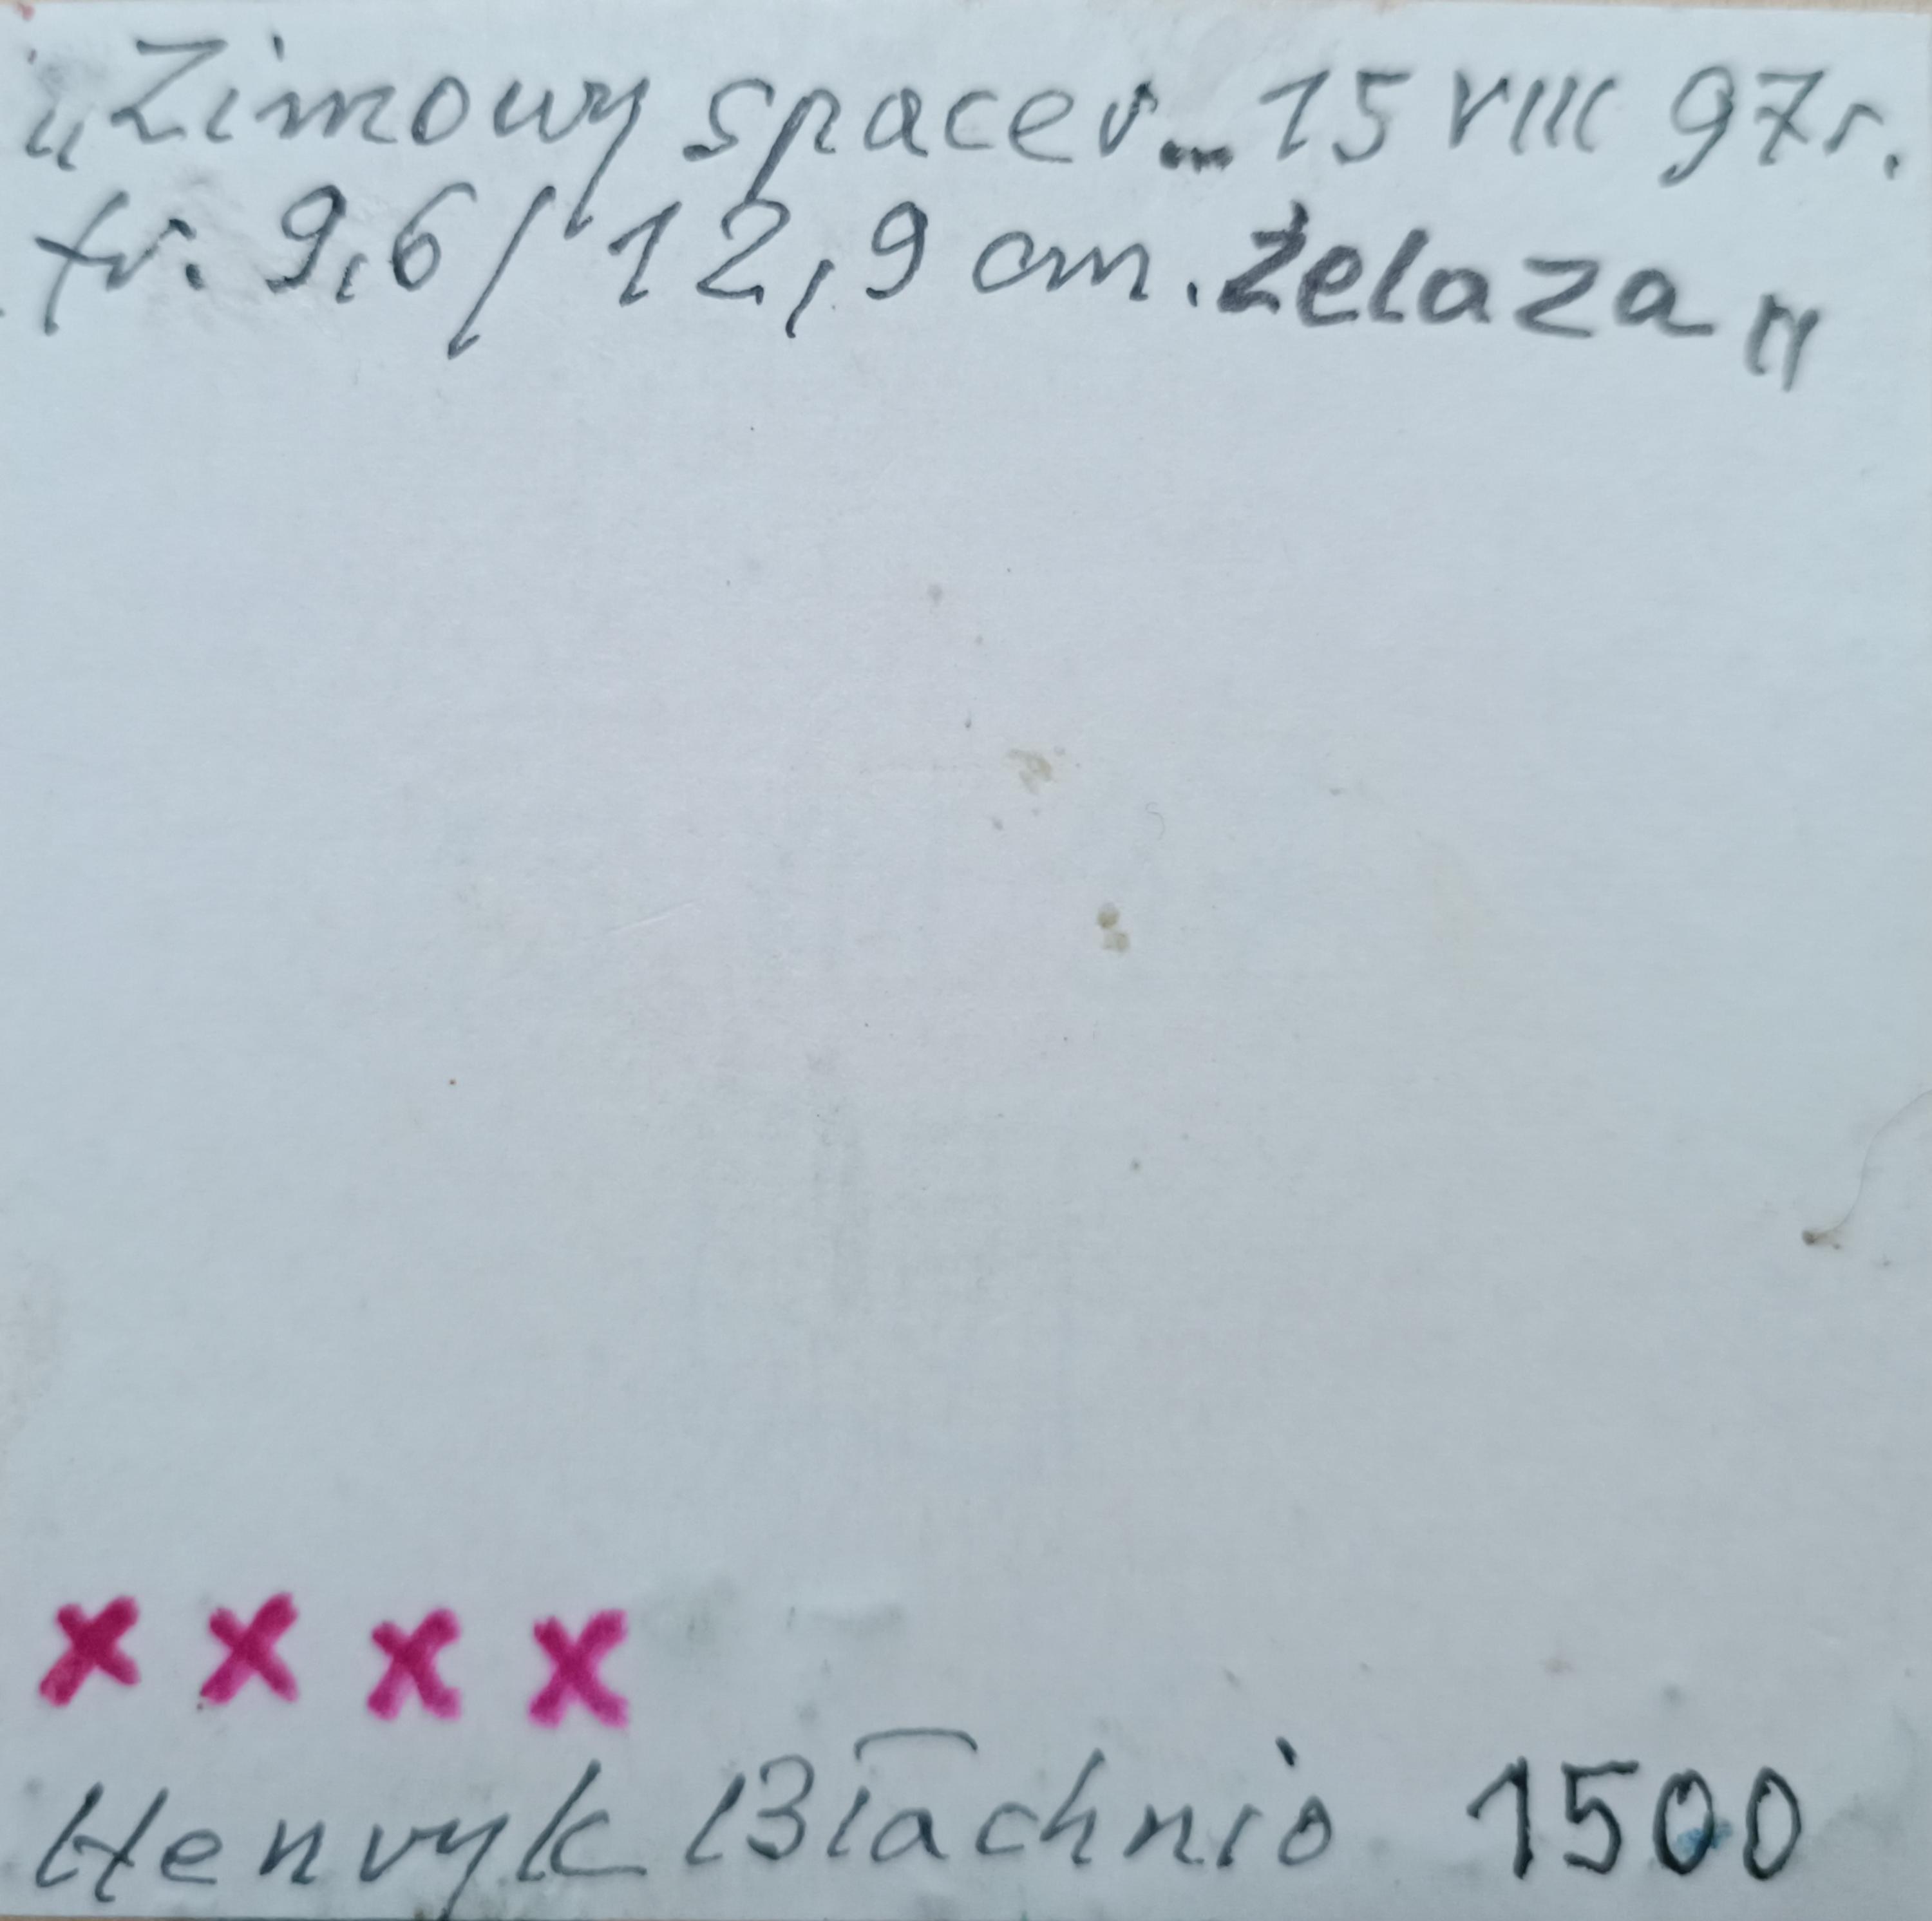 „Zimowy spacer... 15 VIII 97r.
fr. 9,6/12,9 cm. żelaza"
x x x x
Henryk Błachnio 1500